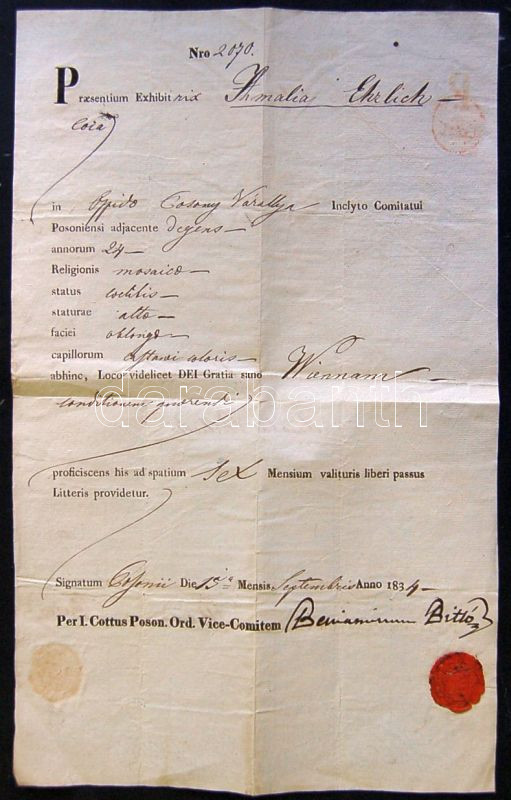 Nro 2070.
Præsentium Exhibitrix Amalia Ehrlich
in Oppido Posony Varallya Inclyto Comitatui
Posoniensi adjacente degens
annorum 24
Religionis mosaicæ
status coelibis
staturae altæ
faciei oblongæ
capillorum castanei coloris
abhinc, Loco videlicet DEI Gratia sano Viennam
conditionem quærendi
proficiscens his ad spatium sex Mensium valituris liberi passus
Litteris providetur.
Signatum Posonii Die 15a Mensis Septembris Anno 1834
Per I. Cottus Poson. Ord. Vice-Comitem Beniaminum Bittó
darabanth